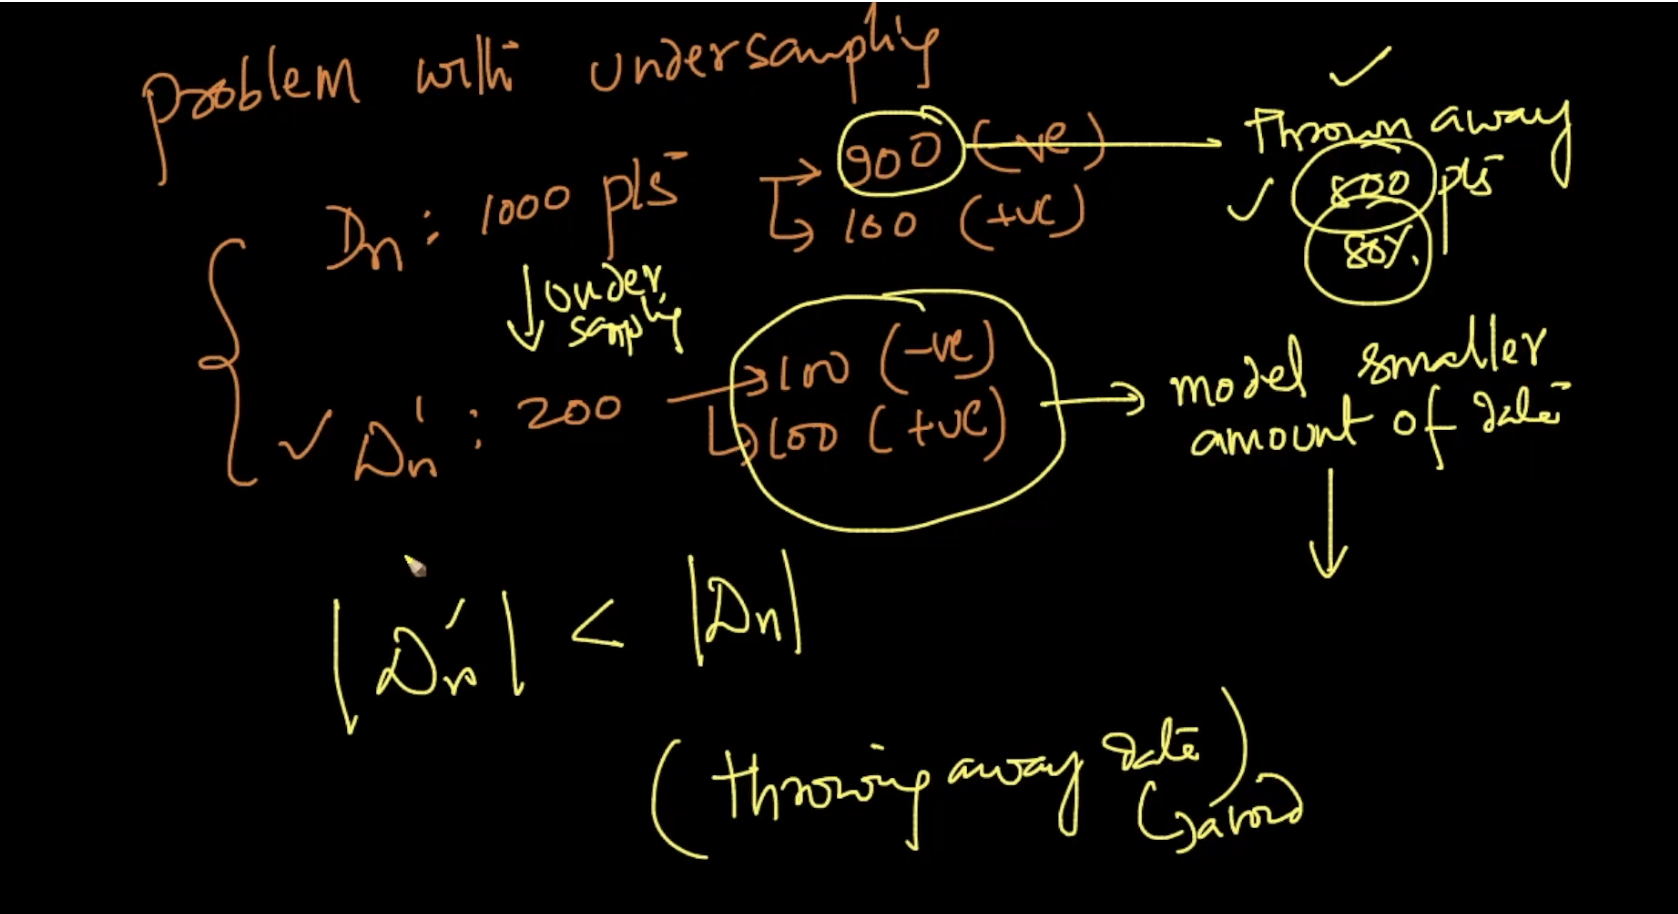 problem with undersampling
Dn: 1000 pts → 900 (-ve) → thrown away
↳ 100 (+ve)
✓ 800 pts
80%.
↓ under
sampling
✓ Dn': 200 → 100 (-ve)
↳ 100 (+ve)
→ model smaller
amount of data
|Dn'| < |Dn|
(throwing away data)
↳ avoid